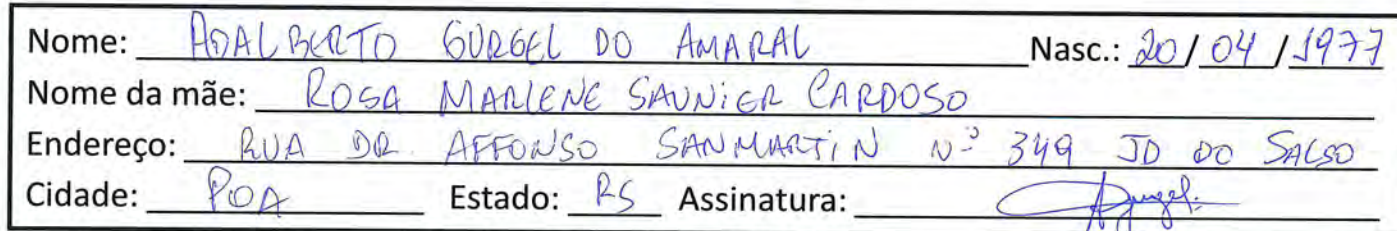 Nome: ADALBERTO GURGEL DO AMARAL Nasc.: 20/04/1977
Nome da mãe: ROSA MARLENE SAUNIER CARDOSO
Endereço: RUA DR. AFFONSO SANMARTIN Nº 349 JD DO SALSO
Cidade: POA Estado: RS Assinatura: AGurgel.